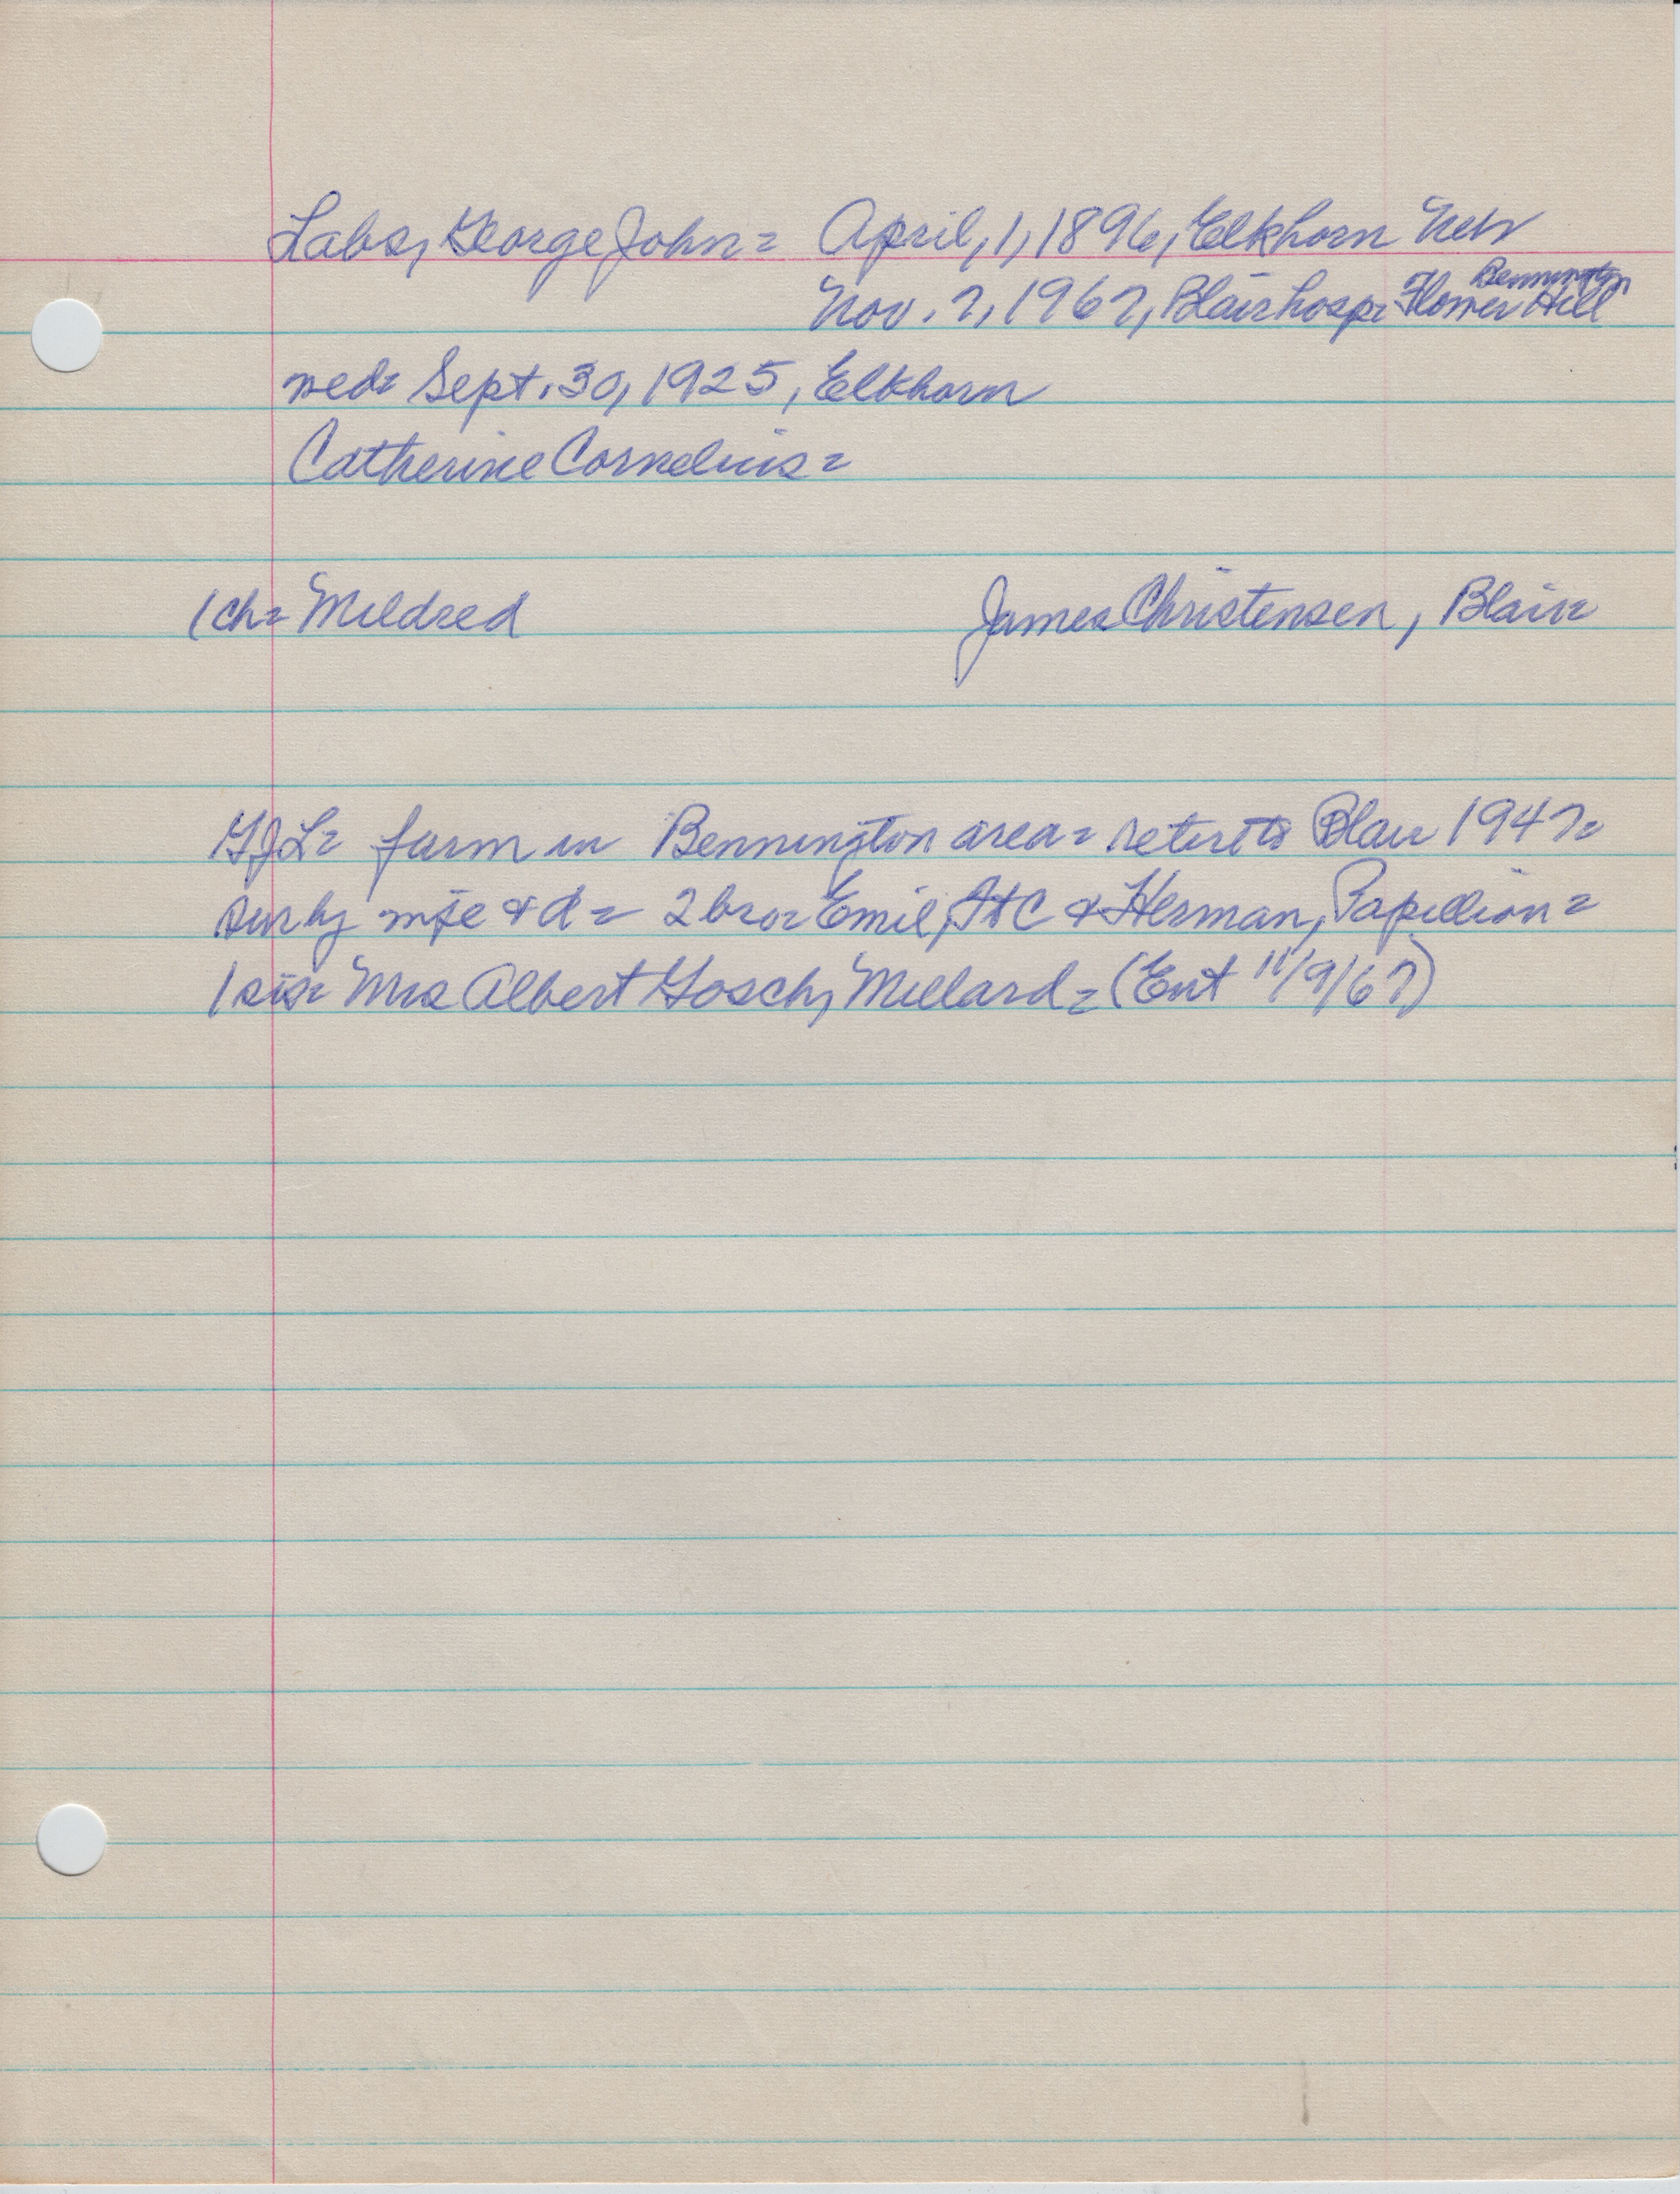 Labs, George John= April, 1, 1896, Elkhorn Neb
Bennington
Nov. 7, 1967, Blair hosp= Flower Hill
wed= Sept. 30, 1925, Elkhorn
Catherine Cornelius=
1 ch= Mildred James Christensen, Blair=
GJL= farm in Bennington area= retire to Blair 1947=
sur by wife & d= 2 bro= Emil, FtC & Herman, Papillion=
1 sis= Mrs Albert Gosch, Millard= (Ent 11/9/67)